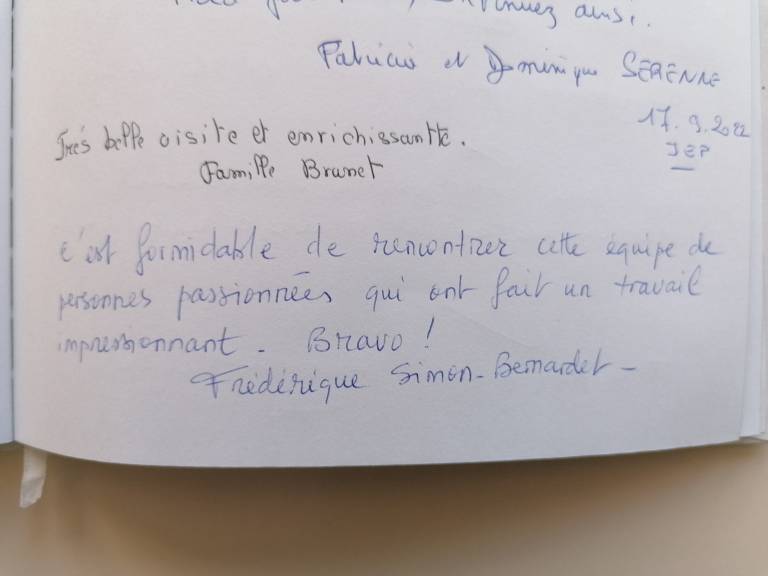 continuez ainsi.
Patricia et Dominique SERENNE
17.9.2022
JEP
Très belle visite et enrichissante.
Famille Brunet
C'est formidable de rencontrer cette équipe de
personnes passionnées qui ont fait un travail
impressionnant. Bravo !
Frédérique Simon-Bernardet -